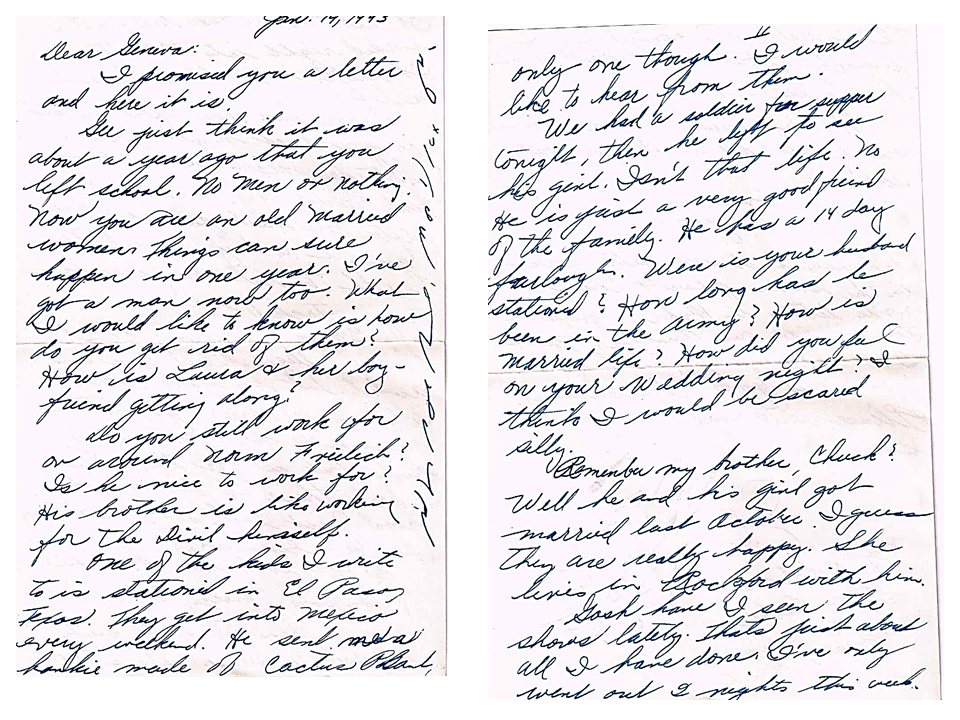 Jan. 14, 1943
Dear Geneva:
I promised you a letter
and here it is.
Gee just think it was
about a year ago that you
left school. No men or nothing.
Now you are an old married
women. Things can sure
happen in one year. I've
got a man now too. What
I would like to know is how
do you get rid of them?
How is Laura & her boy-
friend getting along?
Do you still work for
or around Norm Fridich?
Is he nice to work for?
His brother is like working
for the Divil himself.
One of the kids I write
to is stationed in El Paso,
Texas. They get into Mexico
every weekend. He sent me a
hankie made of Cactus Plant,
II
only one though. I would
like to hear from them.
We had a soldier for supper
tonight, then he left to see
his girl. Isn't that life. No
He is just a very good friend
of the family. He has a 14 day
furlough. Were is your husband
stationed? How long has he
been in the army? How is
married life? How did you feel
on your wedding night? I
think I would be scared
silly.
Remember my brother, Chuck?
Well he and his girl got
married last October. I guess
they are really happy. She
lives in Rockford with him.
Gosh have I seen the
shows lately. Thats just about
all I have done. I've only
went out 2 nights this week.